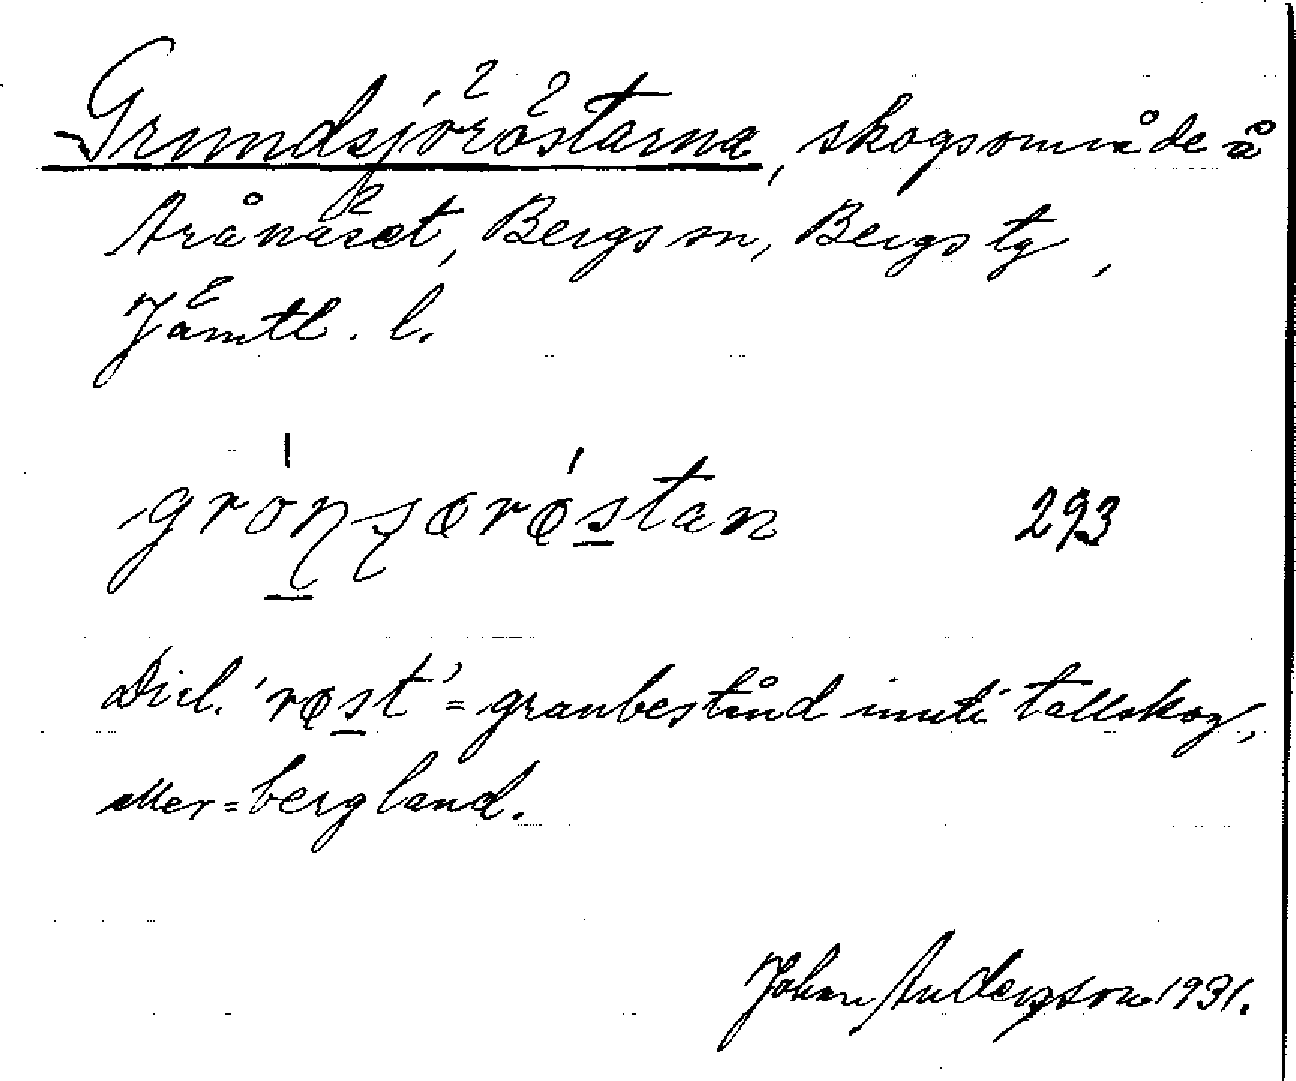 Grundsjöröstarna, skogsområde å
Arånäset, Bergs sn, Bergs tg,
Jämtl. l.
grònsærǿstan 293
Dial. 'røst' = granbestånd inuti tallskog,
eller = bergland.
Johan Andersson 1931.